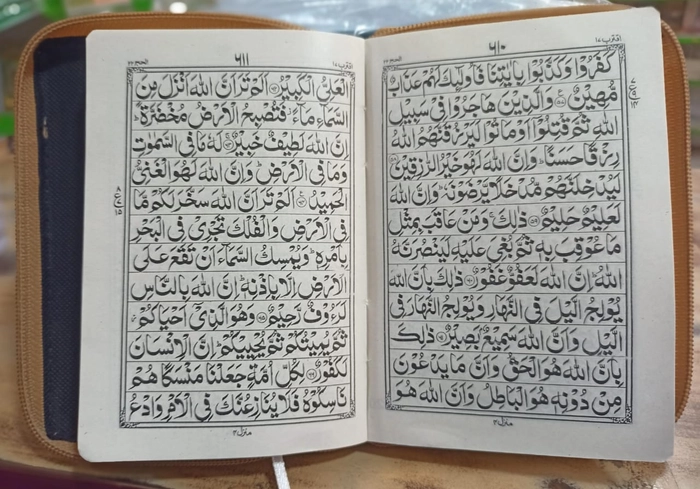 اقترب ١٧
٦١٠
الحج ٢٢
كَفَرُوْا وَكَذَّبُوْا بِاٰيٰتِنَا فَاُولٰٓئِكَ لَهُمْ عَذَابٌ
مُّهِيْنٌ ﴿٥٧﴾ وَالَّذِيْنَ هَاجَرُوْا فِيْ سَبِيْلِ
اللّٰهِ ثُمَّ قُتِلُوْٓا اَوْ مَاتُوْا لَيَرْزُقَنَّهُمُ اللّٰهُ
رِزْقًا حَسَنًا ؕ وَاِنَّ اللّٰهَ لَهُوَ خَيْرُ الرّٰزِقِيْنَ ﴿٥٨﴾
لَيُدْخِلَنَّهُمْ مُّدْخَلًا يَّرْضَوْنَهٗ ؕ وَاِنَّ اللّٰهَ
لَعَلِيْمٌ حَلِيْمٌ ﴿٥٩﴾ ذٰلِكَ ۚ وَمَنْ عَاقَبَ بِمِثْلِ
مَا عُوْقِبَ بِهٖ ثُمَّ بُغِيَ عَلَيْهِ لَيَنْصُرَنَّهُ
اللّٰهُ ؕ اِنَّ اللّٰهَ لَعَفُوٌّ غَفُوْرٌ ﴿٦٠﴾ ذٰلِكَ بِاَنَّ اللّٰهَ
يُوْلِجُ الَّيْلَ فِي النَّهَارِ وَيُوْلِجُ النَّهَارَ فِي
الَّيْلِ وَاَنَّ اللّٰهَ سَمِيْعٌۢ بَصِيْرٌ ﴿٦١﴾ ذٰلِكَ
بِاَنَّ اللّٰهَ هُوَ الْحَقُّ وَاَنَّ مَا يَدْعُوْنَ
مِنْ دُوْنِهٖ هُوَ الْبَاطِلُ وَاَنَّ اللّٰهَ هُوَ
منزل ٤
اقترب ١٧
٦١١
الحج ٢٢
الْعَلِيُّ الْكَبِيْرُ ﴿٦٢﴾ اَلَمْ تَرَ اَنَّ اللّٰهَ اَنْزَلَ مِنَ
السَّمَآءِ مَآءً ؗ فَتُصْبِحُ الْاَرْضُ مُخْضَرَّةً ؕ
اِنَّ اللّٰهَ لَطِيْفٌ خَبِيْرٌ ﴿٦٣﴾ لَهٗ مَا فِي السَّمٰوٰتِ
وَمَا فِي الْاَرْضِ ؕ وَاِنَّ اللّٰهَ لَهُوَ الْغَنِيُّ
الْحَمِيْدُ ﴿٦٤﴾ اَلَمْ تَرَ اَنَّ اللّٰهَ سَخَّرَ لَكُمْ مَّا
فِي الْاَرْضِ وَالْفُلْكَ تَجْرِيْ فِي الْبَحْرِ
بِاَمْرِهٖ ؕ وَيُمْسِكُ السَّمَآءَ اَنْ تَقَعَ عَلَى
الْاَرْضِ اِلَّا بِاِذْنِهٖ ؕ اِنَّ اللّٰهَ بِالنَّاسِ
لَرَءُوْفٌ رَّحِيْمٌ ﴿٦٥﴾ وَهُوَ الَّذِيْٓ اَحْيَاكُمْ ؗ
ثُمَّ يُمِيْتُكُمْ ثُمَّ يُحْيِيْكُمْ ؕ اِنَّ الْاِنْسَانَ
لَكَفُوْرٌ ﴿٦٦﴾ لِكُلِّ اُمَّةٍ جَعَلْنَا مَنْسَكًا هُمْ
نَاسِكُوْهُ فَلَا يُنَازِعُنَّكَ فِي الْاَمْرِ وَادْعُ
منزل ٤